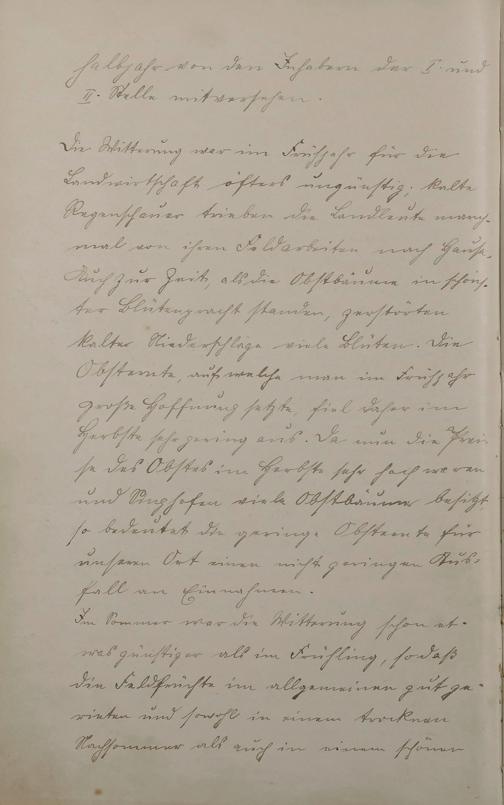 halbjahr von den Inhabern der I. und
II. Stelle mitversehen.
Die Witterung war im Frühjahr für die
Landwirtschaft öfters ungünstig; kalte
Regenschauer trieben die Landleute manch-
mal von ihren Feldarbeiten nach Hause.
Auch zur Zeit, als die Obstbäume in schöns-
ter Blütenpracht standen, zerstörten
kalter Niederschläge viele Blüten. Die
Obsternte, auf welche man im Frühjahr
große Hoffnung setzte, fiel daher im
Herbste sehr gering aus. Da nun die Prei-
se des Obstes im Herbste sehr hoch waren
und viele Obstbäume besitzt
so bedeutet die geringe Obsternte für
unseren Ort einen nicht geringen Aus-
fall an Einnahmen.
Im Sommer war die Witterung schon et-
was günstiger als im Frühling, sodaß
die Feldfrüchte im allgemeinen gut ge-
rieten und sowohl in einem trocknen
Nachsommer als auch in einem schönen